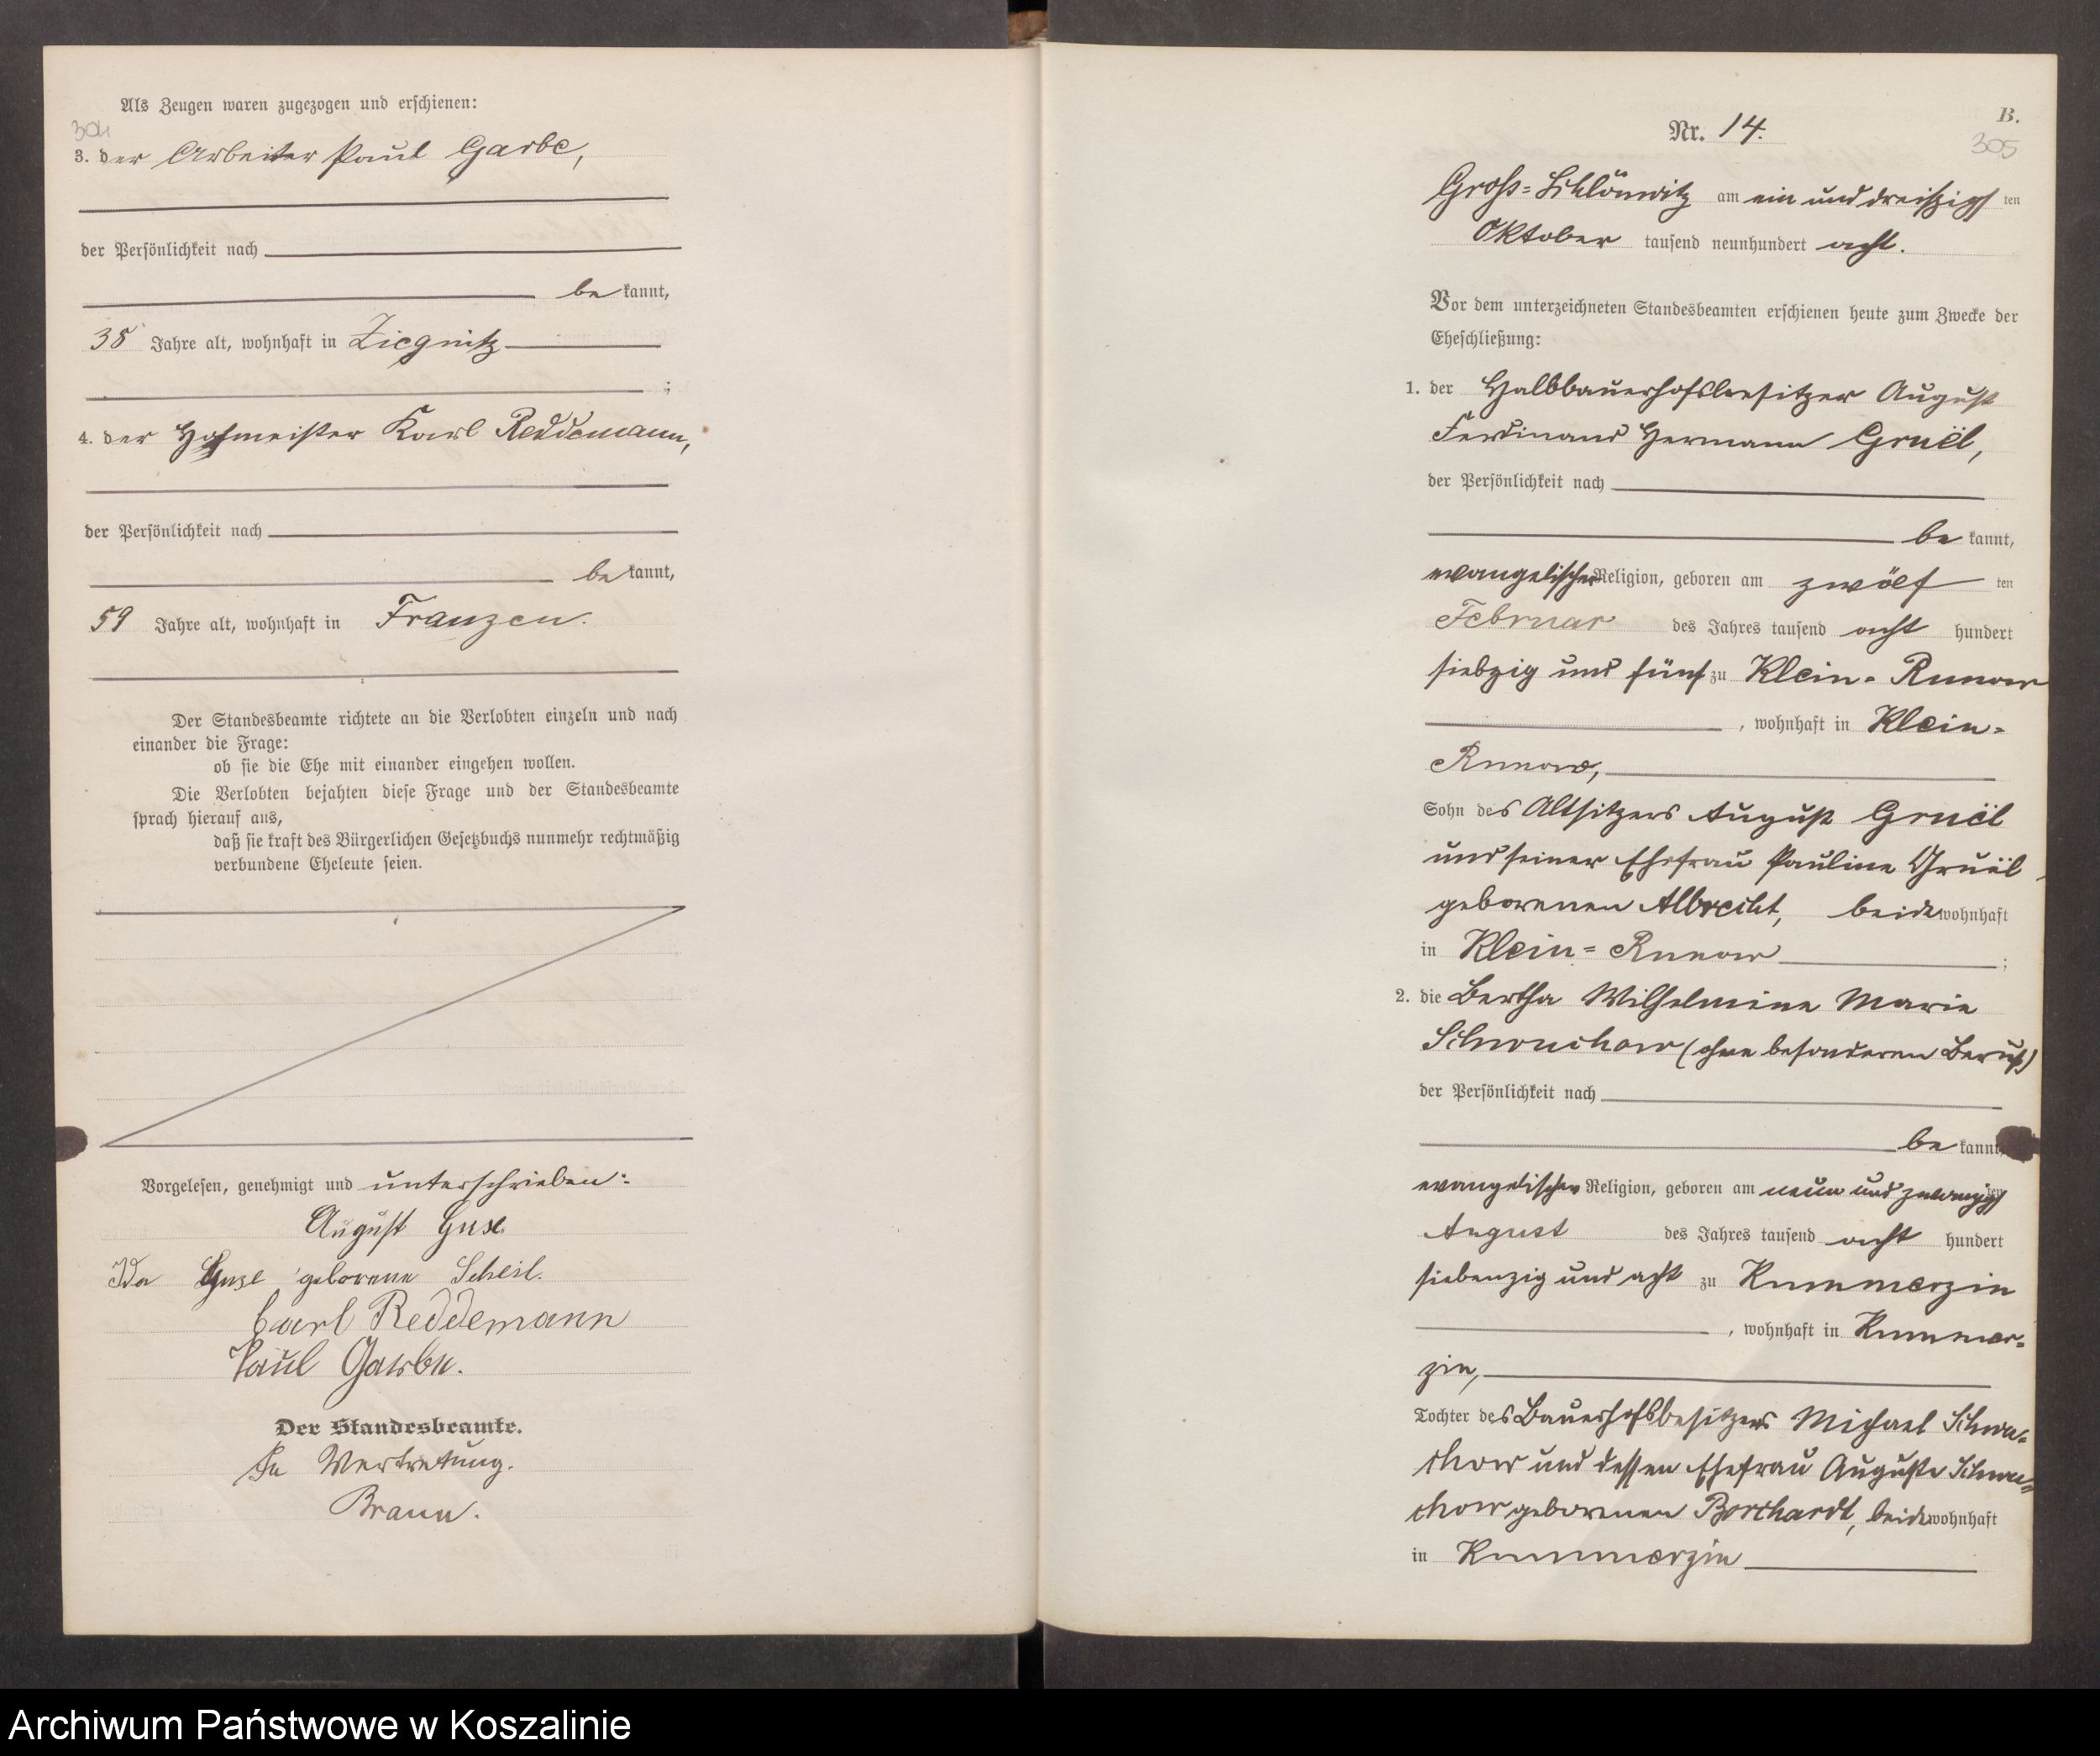 Als Zeugen waren zugezogen und erschienen:
304
3. der Arbeiter Paul Garbe,
der Persönlichkeit nach
be kannt,
38 Jahre alt, wohnhaft in Ziegnitz
;
4. der Hofmeister Karl Reddemann,
der Persönlichkeit nach
be kannt,
59 Jahre alt, wohnhaft in Franzen.
Der Standesbeamte richtete an die Verlobten einzeln und nach
einander die Frage:
ob sie die Ehe mit einander eingehen wollen.
Die Verlobten bejahten diese Frage und der Standesbeamte
sprach hierauf aus,
daß sie kraft des Bürgerlichen Gesetzbuchs nunmehr rechtmäßig
verbundene Eheleute seien.
Vorgelesen, genehmigt und unterschrieben:
August Guse
Ida Guse geborene Scheil.
Carl Reddemann
Paul Garbe.
Der Standesbeamte.
In Vertretung.
Braun.
B.
Nr. 14.
305
Groß-Schlönwitz am ein und dreißigst ten
Oktober tausend neunhundert acht.
Vor dem unterzeichneten Standesbeamten erschienen heute zum Zwecke der
Eheschließung:
1. der Halbbauerhofsbesitzer August
Ferdinand Hermann Gruël,
der Persönlichkeit nach
be kannt,
evangelischer Religion, geboren am zwölf ten
Februar des Jahres tausend acht hundert
siebzig und fünf zu Klein-Runow
, wohnhaft in Klein-
Runow,
Sohn des Altsitzers August Gruël
und seiner Ehefrau Pauline Gruël
geborenen Albrecht, beide wohnhaft
in Klein=Runow ;
2. die Bertha Wilhelmine Marie
Schwuchow (ohne besonderen Beruf)
der Persönlichkeit nach
be kannt,
evangelischer Religion, geboren am neun und zwanzigst ten
August des Jahres tausend acht hundert
siebenzig und acht zu Kummerzin
, wohnhaft in Kummer-
zin,
Tochter des Bauerhofsbesitzers Michael Schwu-
chow und dessen Ehefrau Auguste Schwu-
chow geborenen Borchardt, beide wohnhaft
in Kummerzin
Archiwum Państwowe w Koszalinie